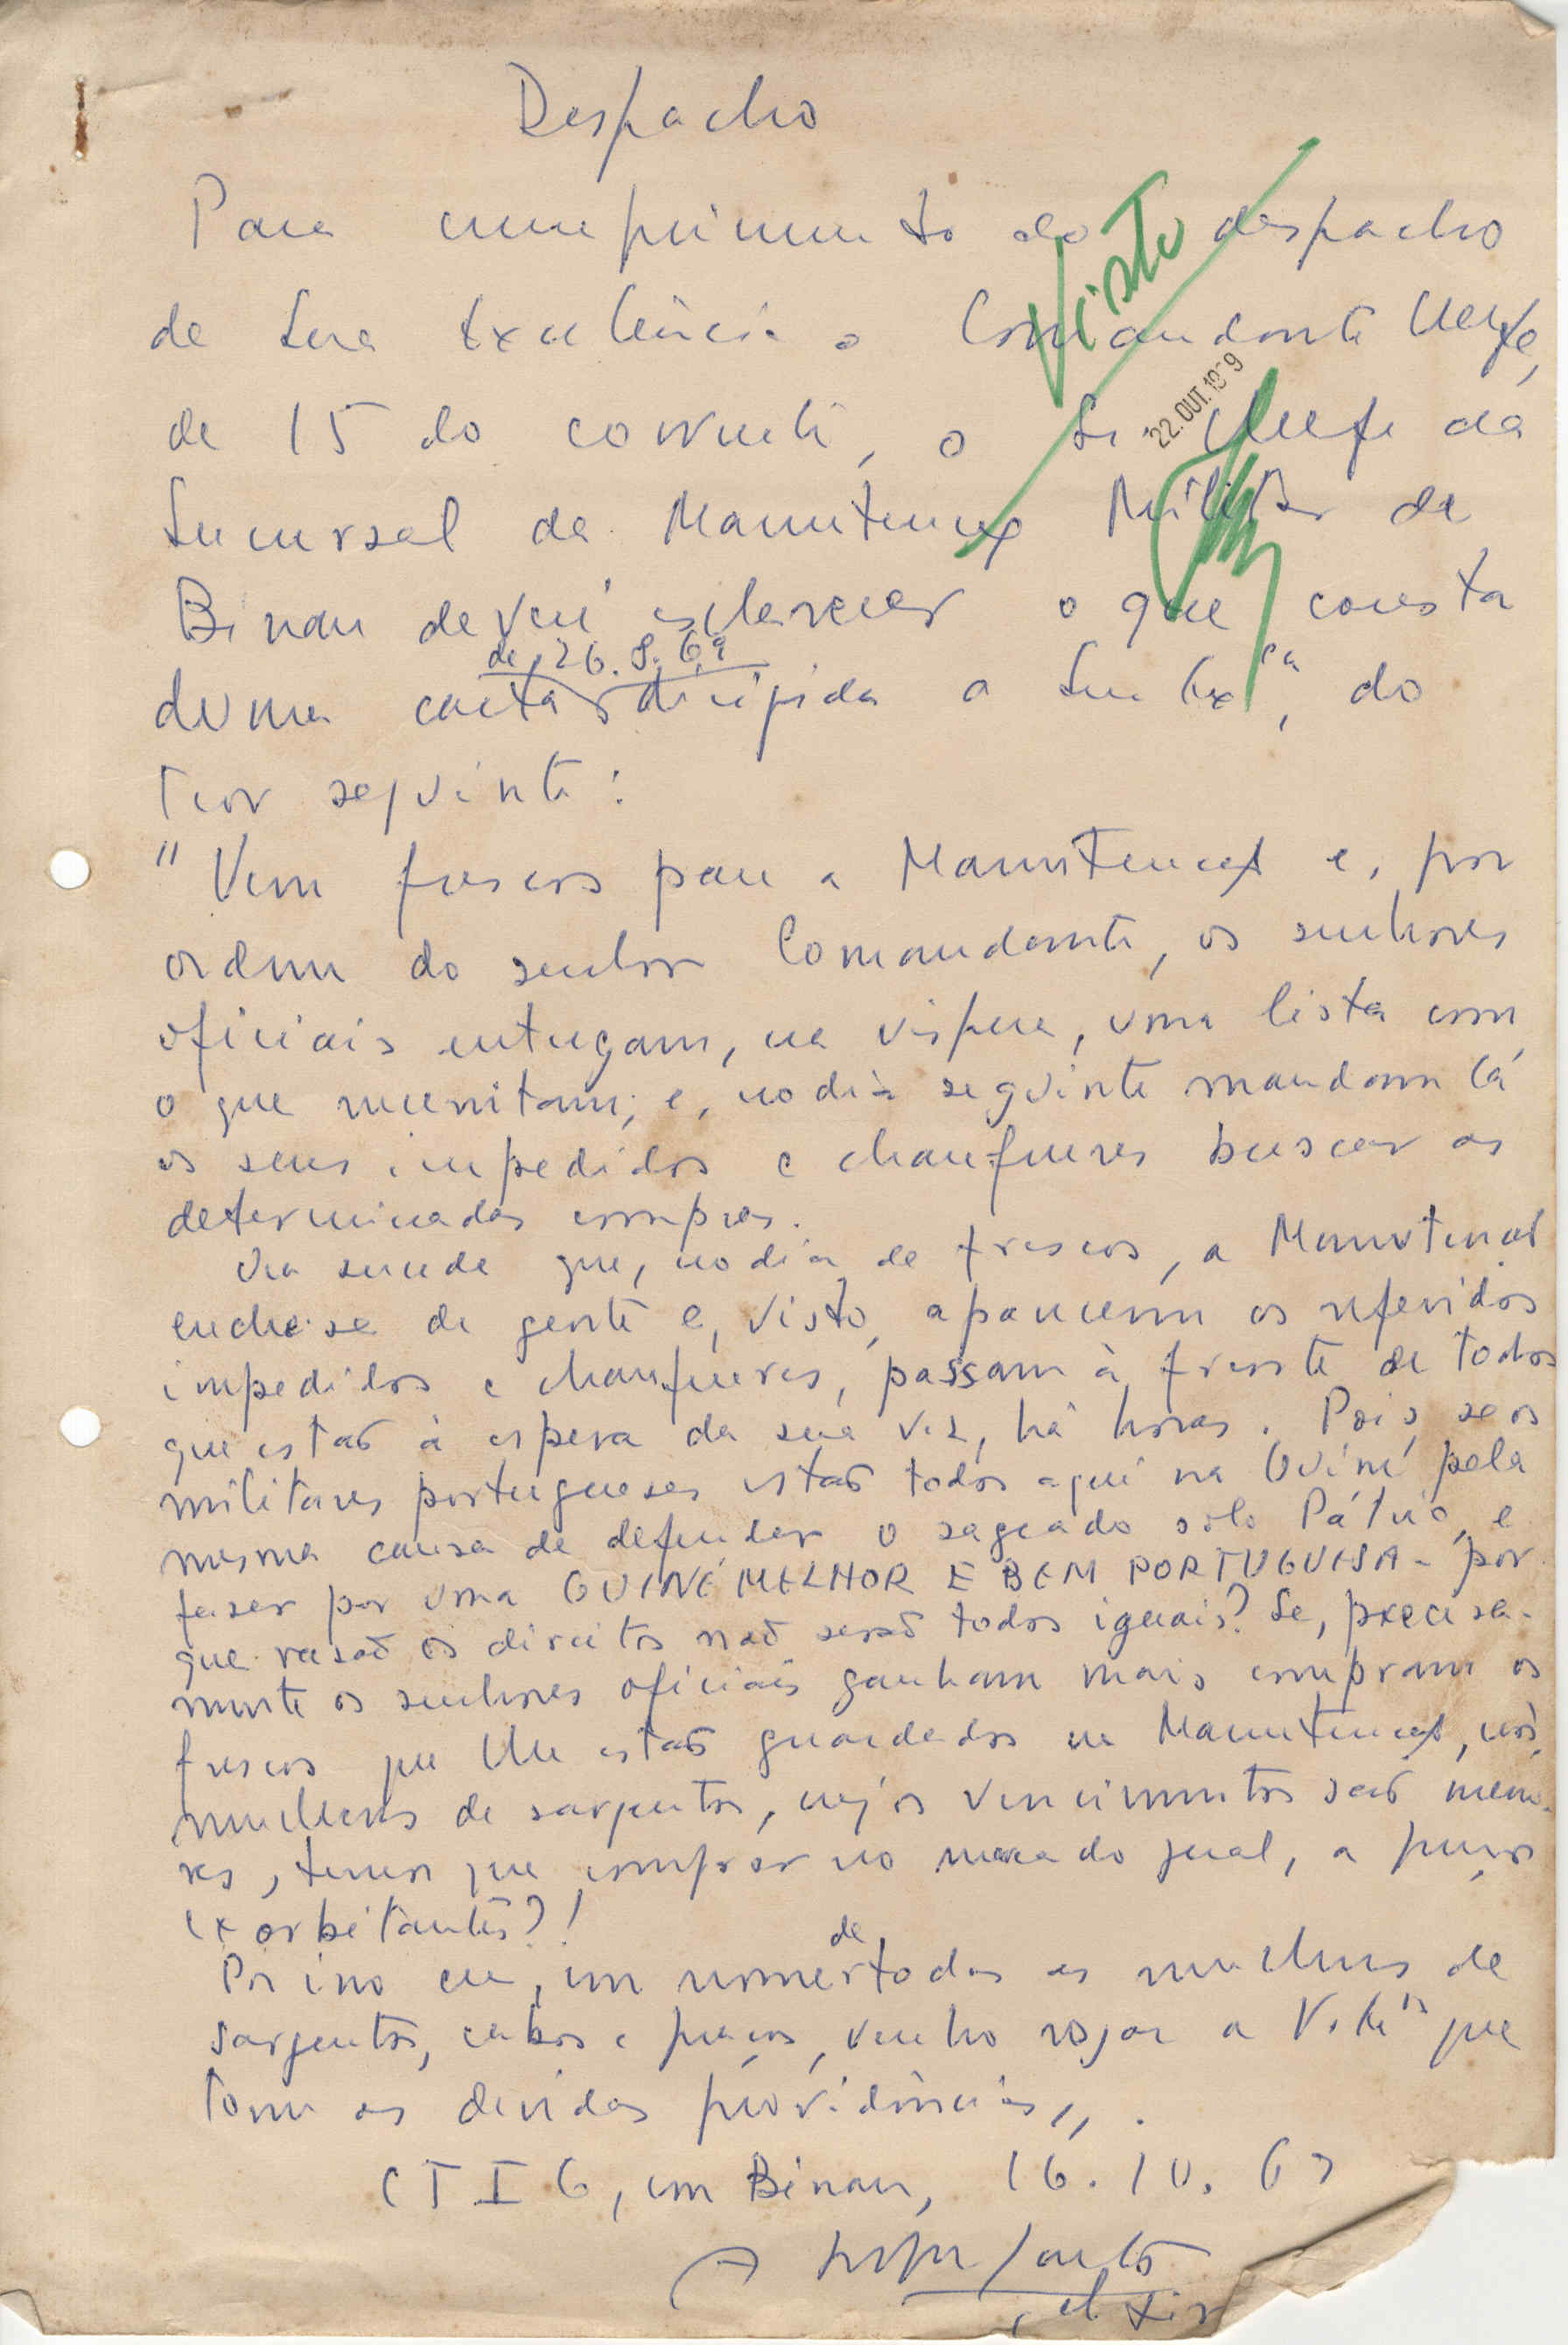 Despacho
Para cumprimento do despacho
de Sua Excelência o Comandante Chefe,
de 15 do corrente, o Sr Chefe da
Sucursal da Manutenção Militar de
Bissau deverá esclarecer o que consta
de 26.9.69
duma carta dirigida a Sua Exª, do
teor seguinte:
"Vem frescos para a Manutenção e, por
ordem do senhor Comandante, os senhores
oficiais entregam, na véspera, uma lista com
o que necessitam; e, no dia seguinte mandam lá
os seus impedidos e chaufeures buscar as
determinadas compras.
Ora sucede que, no dia de frescos, a Manutenção
enche-se de gente e, visto, aparecem os referidos
impedidos e chaufeures, passam à frente de todos
que estão à espera da sua vez, há horas. Pois, se os
militares portugueses estão todos aqui na Guiné pela
mesma causa de defender o sagrado solo Pátrio, e
fazer por uma GUINÉ MELHOR E BEM PORTUGUESA - por
que razão os direitos não serão todos iguais? Se, precisa-
mente os senhores oficiais ganham mais compram os
frescos que lhe estão guardados na Manutenção, nós,
mulheres de sargentos, cujos vencimentos são meno-
res, temos que comprar no mercado geral, a preços
exorbitantes?!
Por isso eu, em nome de todas as mulheres de
sargentos, cabos e praças, venho rogar a V. Exª que
tome as devidas providências".
CTIG, em Bissau, 16.10.69
Visto
22.OUT.1969